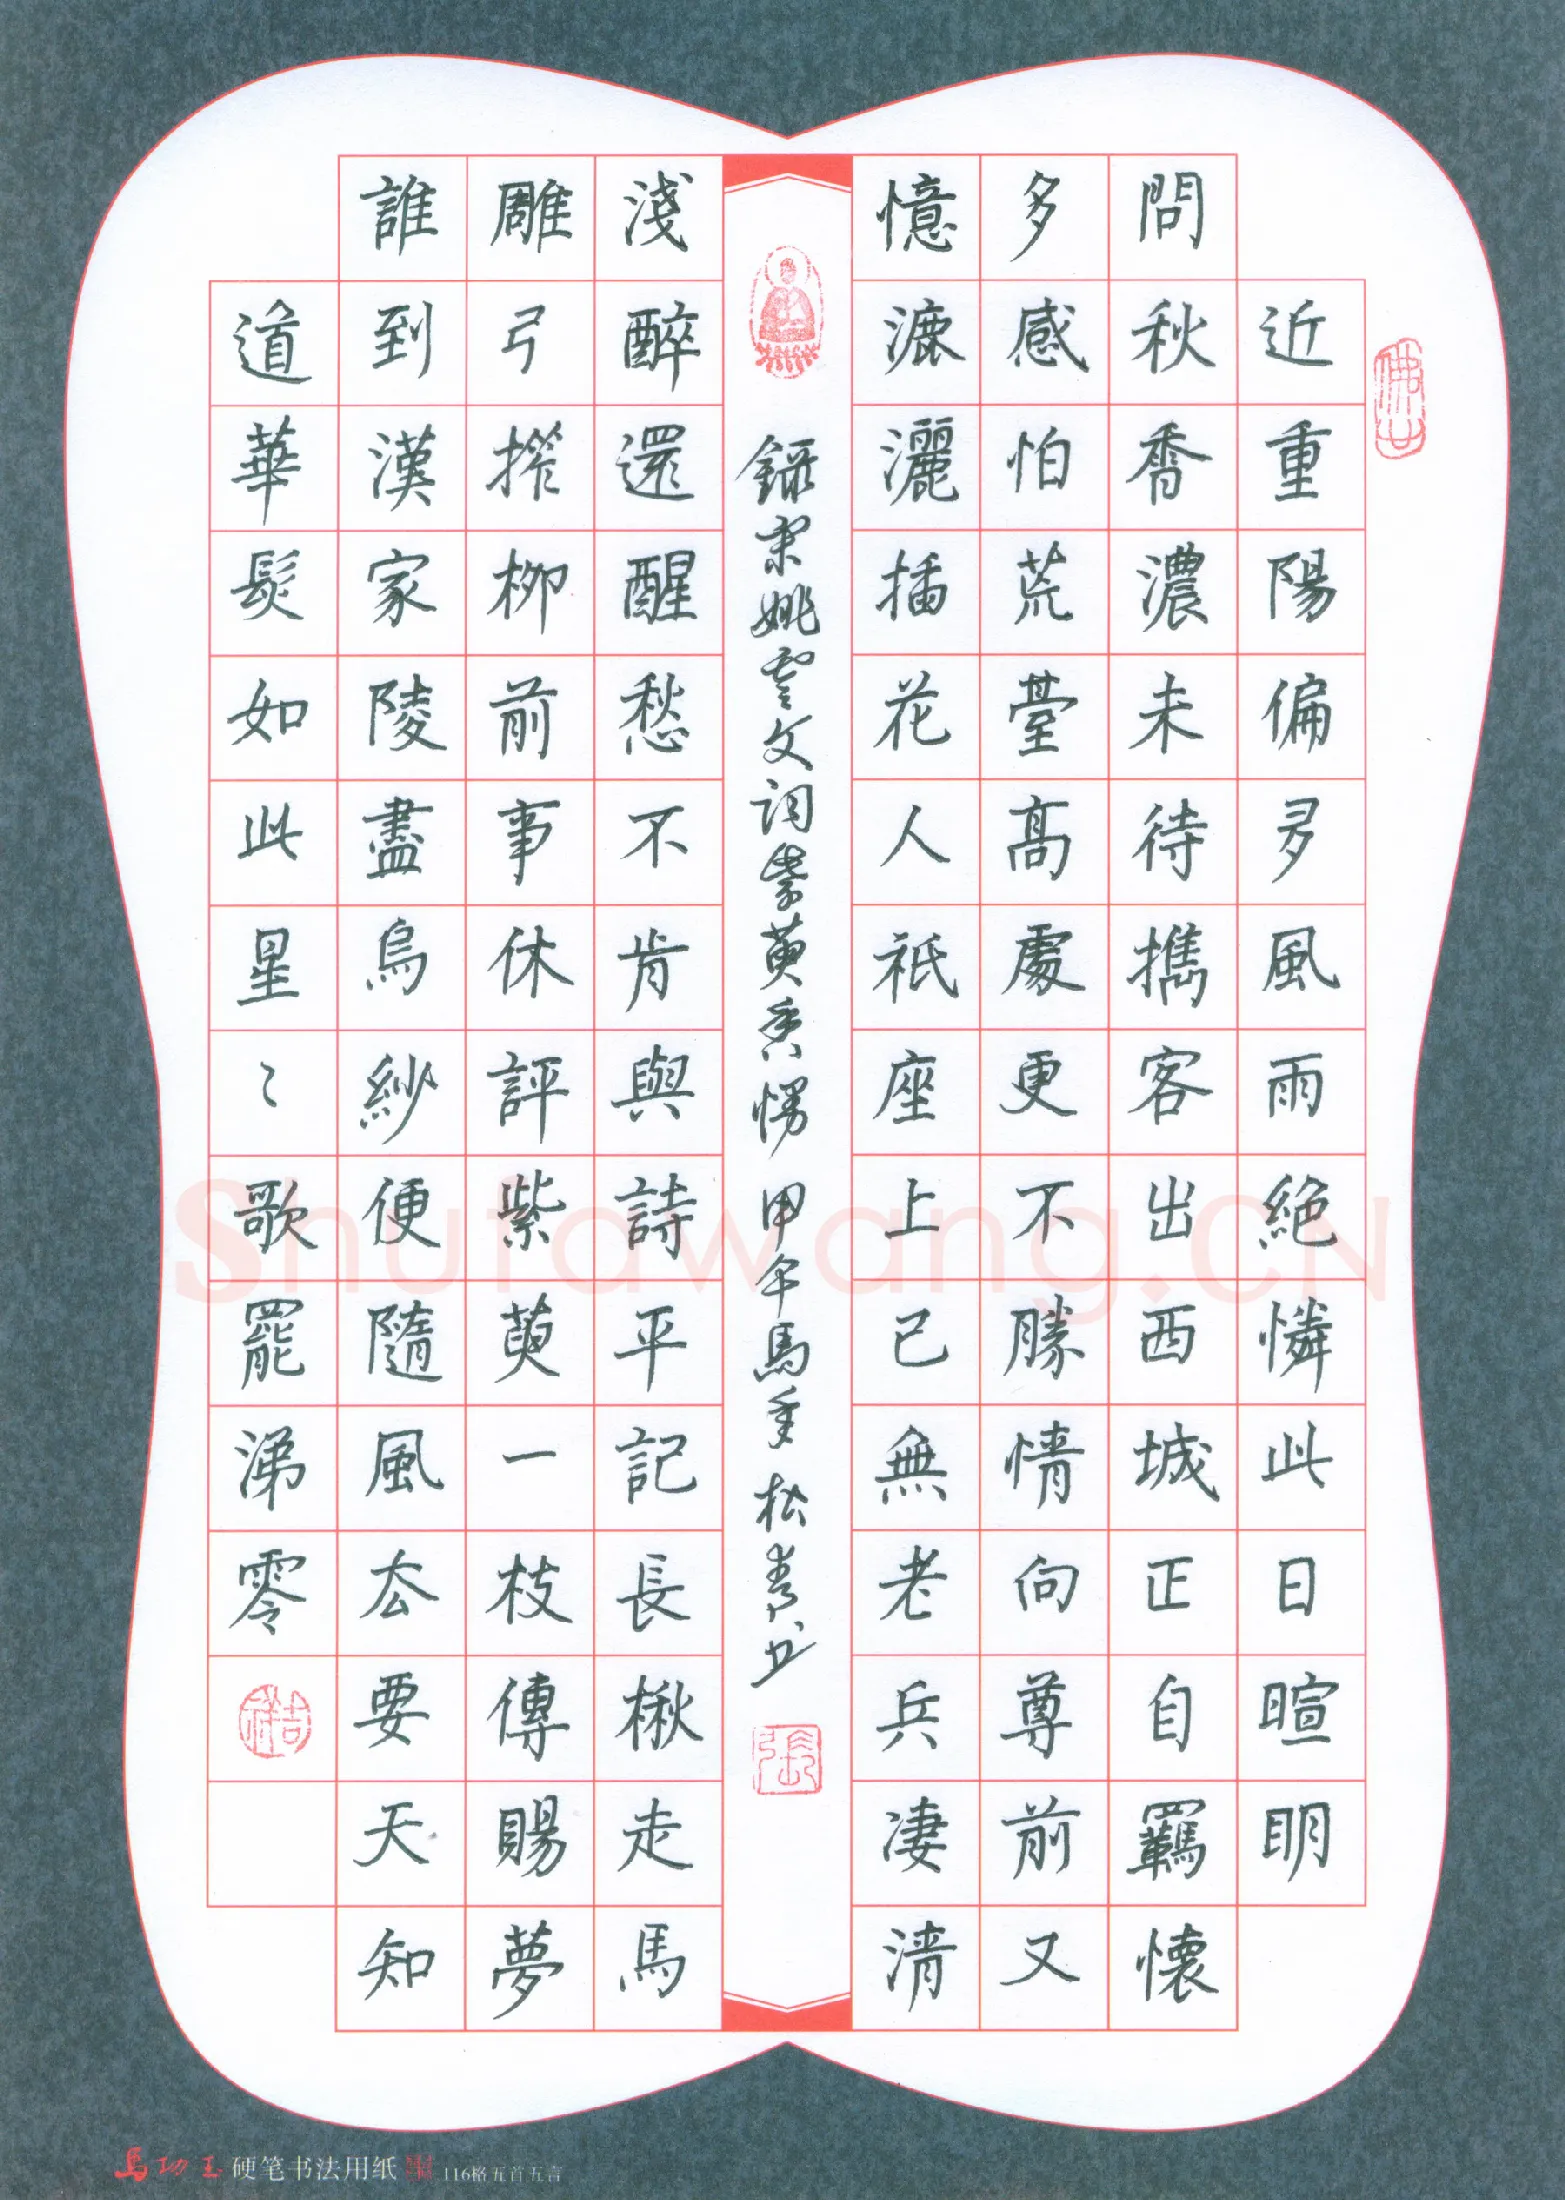 近重陽偏多風雨絶憐此日暄明
問秋香濃未待攜客出西城正自羈懷
多感怕荒臺高處更不勝情向尊前又
憶漉灑插花人祇座上已無老兵淒清
錄宋姚雲文詞紫萸香慢 甲午馬年 松青書
淺醉還醒愁不肯與詩平記長楸走馬
雕弓搾柳前事休評紫萸一枝傳賜夢
誰到漢家陵盡烏紗便隨風去要天知
道華髮如此星〻歌罷涕零
佛山
張
吉祥
Shufawang.CN
馬功玉 硬笔书法用纸 116格五首五言